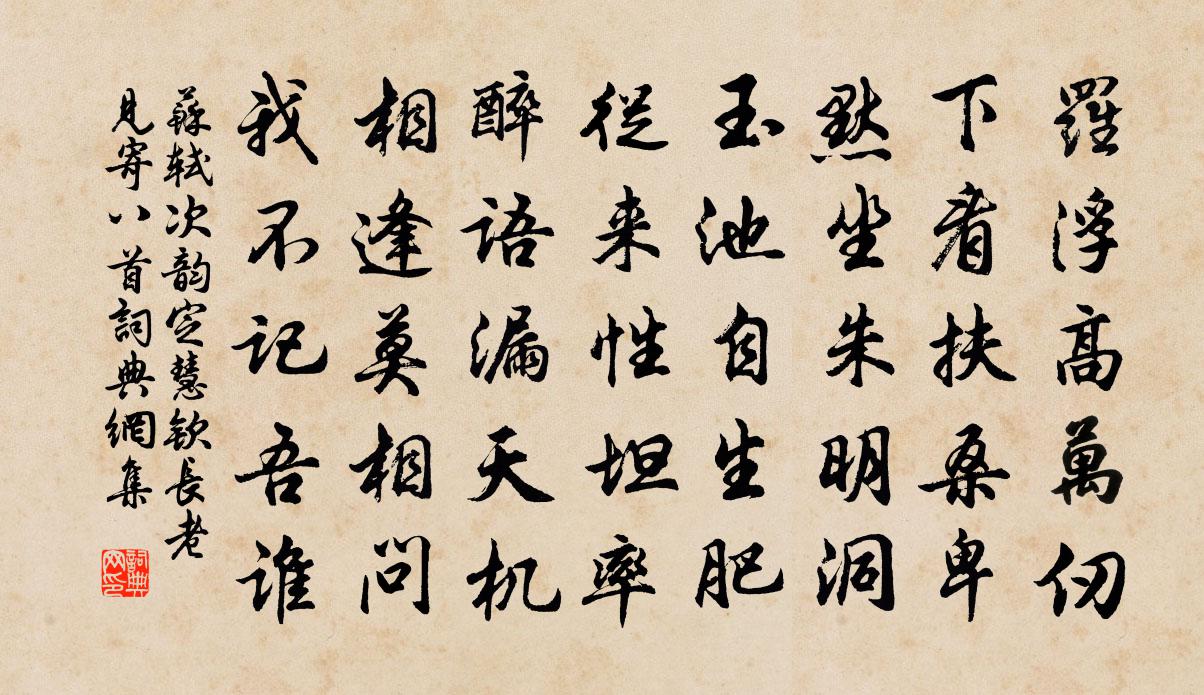 羅浮高萬仞
下看扶桑卑
默坐朱明洞
玉池自生肥
從来性坦率
醉語漏天机
相逢莫相問
我不记吾谁
蘇轼次韵定慧欽長老
見寄八首詞典網集
詞典网印